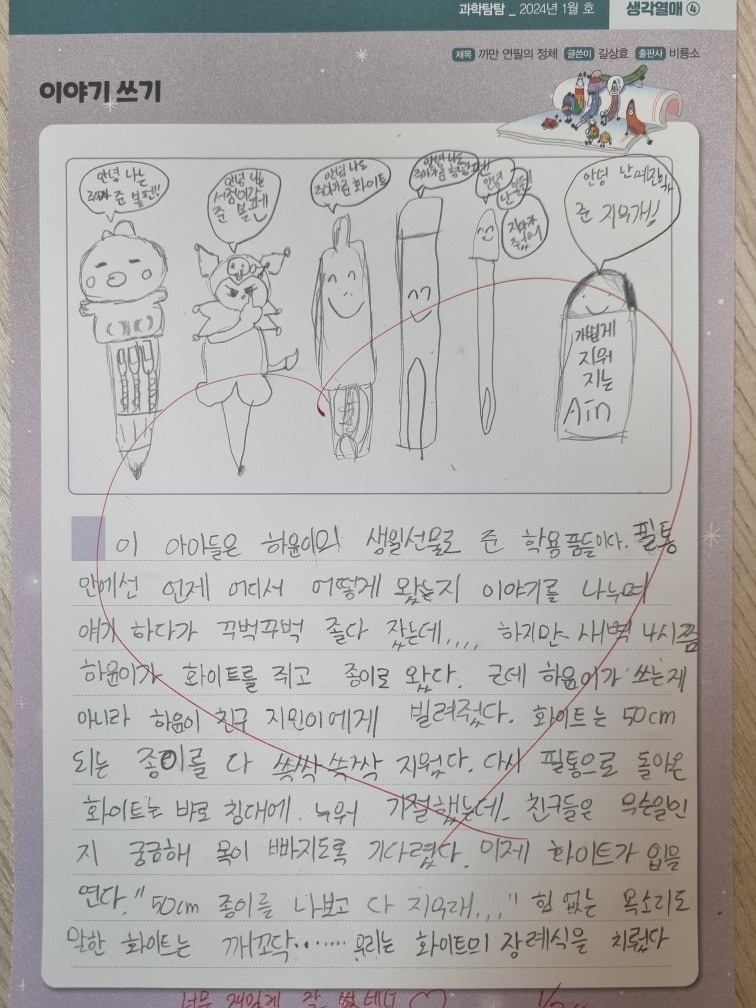 과학탐탐 _ 2024년 1월 호
생각열매 ④
제목 까만 연필의 정체 글쓴이 길상효 출판사 비룡소
이야기 쓰기
안녕 나는
준 볼펜!!
안녕 나는
서정이가
준 볼펜
안녕 나는
화이트
안녕 나는
안녕
난
안녕 난
준 지우개!!
가볍게
지워
지는
Ain
이 아아들은 하윤이의 생일선물로 준 학용품들이다. 필통
안에선 언제 어디서 어떻게 왔는지 이야기를 나누며
얘기 하다가 꾸벅꾸벅 졸다 잤는데.... 하지만 새벽 4시쯤
하윤이가 화이트를 쥐고 종이로 왔다. 근데 하윤이가 쓰는제
아니라 하윤이 친구 지민이에게 빌려줬다. 화이트는 50cm
되는 종이를 다 쓱싹쓱싹 지웠다. 다시 필통으로 돌아온
화이트는 바로 침대에 누워 기절했는데. 친구들은 무슨일인
지 궁금해 목이 빠지도록 기다렸다. 이제 화이트가 입을
연다. "50cm 종이를 나보고 다 지우래..." 힘 없는 목소리로
말한 화이트는 깨꼬닥....... 우리는 화이트의 장례식을 치뤘다
너무 재밌게 잘 썼네너